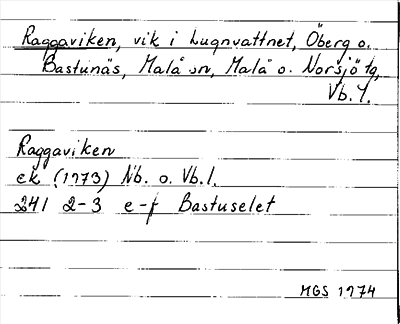 Raggaviken, vik i Lugnvattnet, Öberg o.
Bastunäs, Malå sn, Malå o. Norsjö tg,
Vb. l.
Raggaviken
ek (1973) Nb. o. Vb. l.
241 2-3 e-f Bastuselet
MGS 1974